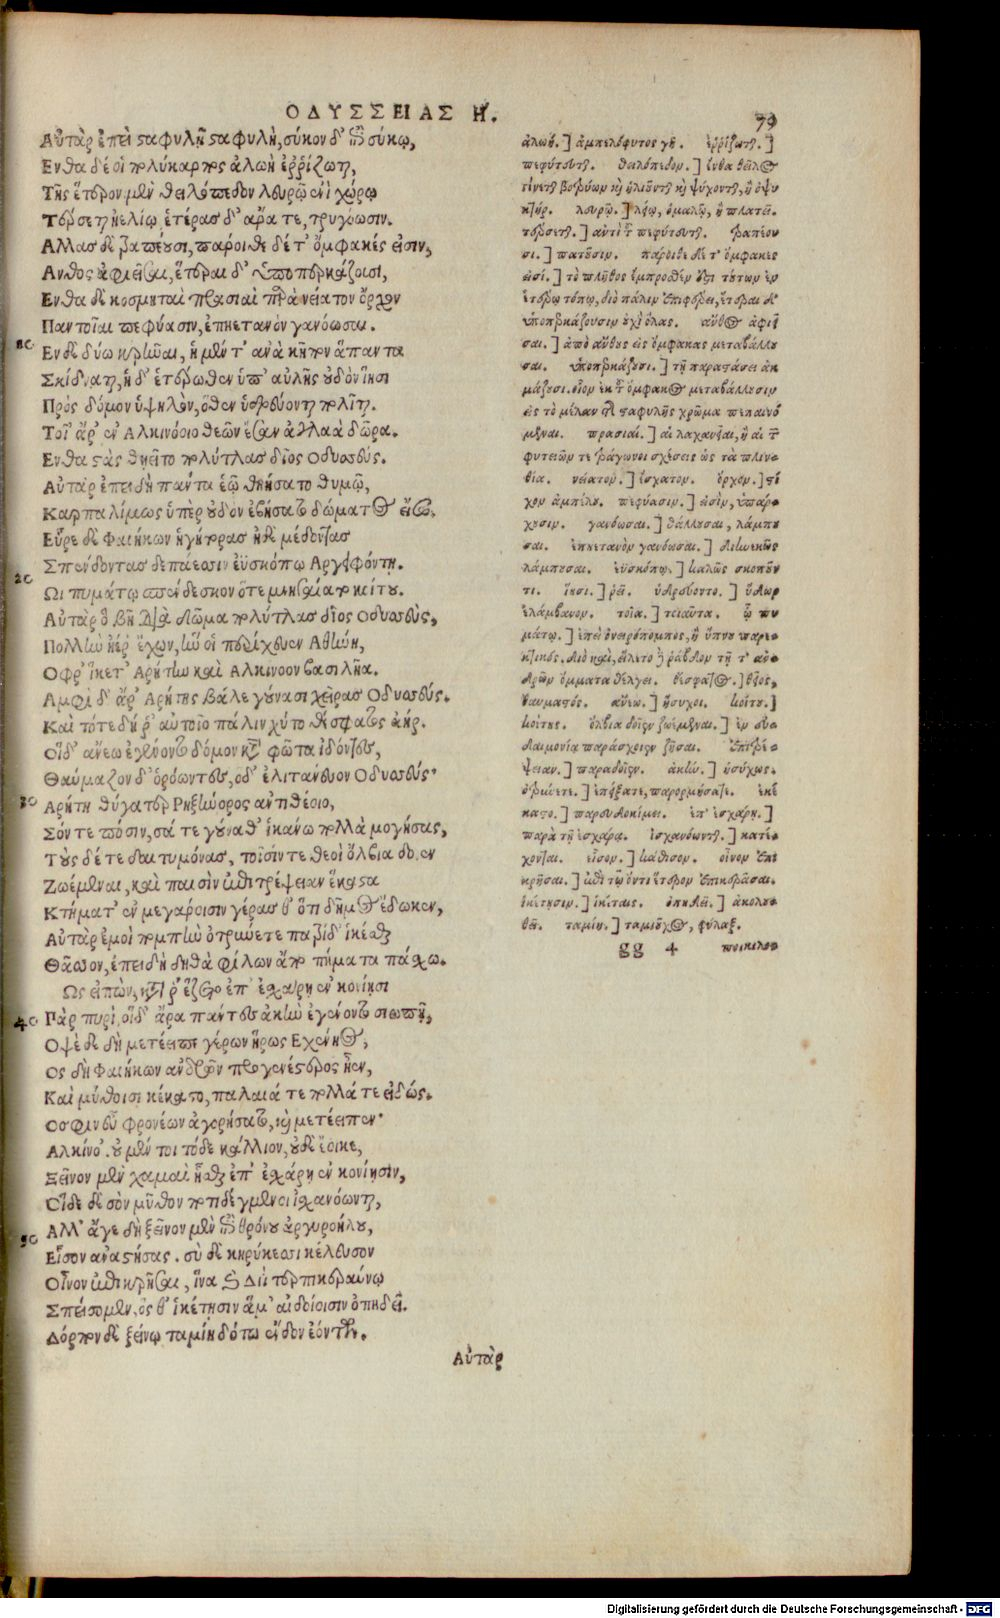 ΟΔΥΣΣΕΙΑΣ Η.
79
Αὐτὰρ ἐπὶ σαφυλῇ σαφυλὴ, σύκον δ' ἐπὶ σύκῳ,
Ενθα δέ οἱ πολύκαρπος ἀλωὴ ἐῤῥίζωται,
Τῆς ἕτερον μὲν θειλόπεδον λευρῷ ἐνὶ χώρῳ
Τέρσεται ἠελίῳ, ἑτέρας δ' ἄρα τε, τρυγόωσιν.
Αλλας δὲ τραπέουσι, πάροιθε δέ τ' ὄμφακές εἰσιν,
Ανθος ἀφιεῖσαι, ἕτεραι δ' ὑποπερκάζουσι,
Ενθα δὲ κοσμηταὶ πρασιαὶ παρὰ νείατον ὄρχον
Παντοῖαι πεφύασιν, ἐπηετανὸν γανόωσαι.
Εν δὲ δύω κρῆναι, ἡ μέν τ' ἀνὰ κῆπον ἅπαντα
Σκίδναται, ἡ δ' ἑτέρωθεν ὑπ' αὐλῆς οὐδὸν ἵησι
Πρὸς δόμον ὑψηλὸν, ὅθεν ὑδρεύοντο πολῖται.
Τοῖ' ἄρ' ἐν Αλκινόοιο θεῶν ἔσαν ἀγλαὰ δῶρα.
Ενθα στὰς θηεῖτο πολύτλας δῖος Οδυσσεύς.
Αὐτὰρ ἐπειδὴ πάντα ἑῷ θηήσατο θυμῷ,
Καρπαλίμως ὑπὲρ οὐδὸν ἐβήσατο δώματος εἴσω,
Εὗρε δὲ Φαιήκων ἡγήτορας ἠδὲ μέδοντας
Σπένδοντας δεπάεσσιν ἐϋσκόπῳ Αργειφόντῃ.
Ωι πυμάτῳ σπένδεσκον ὅτε μνησαίατο κοίτου.
Αὐτὰρ ὁ βῆ διὰ δῶμα πολύτλας δῖος Οδυσσεύς,
Πολλὴν ἠέρ' ἔχων, ἥν οἱ περίχευεν Αθήνη,
Οφρ' ἵκετ' Αρήτην καὶ Αλκίνοον βασιλῆα.
Αμφὶ δ' ἄρ' Αρήτης βάλε γούνασι χεῖρας Οδυσσεύς.
Καὶ τότε δή ῥ' αὐτοῖο πάλιν χύτο θέσφατος ἀήρ.
Οἱ δ' ἄνεω ἐγένοντο δόμον κάτα φῶτα ἰδόντες,
Θαύμαζον δ' ὁρόωντες, ὁ δ' ἐλιτάνευον Οδυσσεύς·
Αρήτη θύγατερ Ρηξήνορος ἀντιθέοιο,
Σόν τε πόσιν, σά τε γούναθ' ἱκάνω πολλὰ μογήσας,
Τούς δέ τε δαιτυμόνας, τοῖσίν τε θεοὶ ὄλβια δοῖεν
Ζωέμεναι, καὶ παισὶν ἐπιτρέψειαν ἕκαστα
Κτήματ' ἐν μεγάροισιν γέρας θ' ὅτι δῆμος ἔδωκεν,
Αὐτὰρ ἐμοὶ πομπὴν ὀτρύνετε πατρίδ' ἱκέσθαι
Θᾶσσον, ἐπειδὴ δηθὰ φίλων ἄπο πήματα πάσχω.
Ως εἰπὼν, κατ' ἄρ' ἕζετο ἐπ' ἐσχάρῃ ἐν κονίῃσι
Πὰρ πυρὶ, οἱ δ' ἄρα πάντες ἀκὴν ἐγένοντο σιωπῇ,
Οψὲ δὲ δὴ μετέειπε γέρων ἥρως Εχένηος,
Ος δὴ Φαιήκων ἀνδρῶν προγενέστερος ἦεν,
Καὶ μύθοισι κέκαστο, παλαιά τε πολλά τε εἰδώς.
Οσφιν εὖ φρονέων ἀγορήσατο, καὶ μετέειπεν·
Αλκίνο'. οὐ μέν τοι τόδε κάλλιον, οὐδὲ ἔοικε,
Ξεῖνον μὲν χαμαὶ ἧσθαι ἐπ' ἐσχάρῃ ἐν κονίῃσιν,
Οἵδε δὲ σὸν μῦθον ποτιδέγμενοι ἰσχανόωνται,
Αλλ' ἄγε δὴ ξεῖνον μὲν ἐπὶ θρόνου ἀργυροήλου,
Εἷσον ἀναστήσας. σὺ δὲ κηρύκεσσι κέλευσον
Οἶνον ἐπικρῆσαι, ἵνα καὶ Διὶ τερπικεραύνῳ
Σπείσομεν, ὅς θ' ἱκέτησιν ἅμ' αἰδοίοισιν ὀπηδεῖ.
Δόρπον δὲ ξείνῳ ταμίη δότω ἔνδον ἐόντων.
Αὐτὰρ
10
20
30
40
50
ἀλωὴ.] ἀμπελόφυτος γῆ. ἐῤῥίζωται.]
πεφύτευται. θειλόπεδον.] ἔνθα θειλο
γίνεται βοτρύων καὶ ἡλιοῦνται καὶ ψύχονται, ἢ ὁ ψυ
κτήρ. λευρῷ.] λείῳ, ὁμαλῷ, ἢ πλατεῖ.
τέρσεται.] ἀντὶ τοῦ πεφύτευται. τραπέου
σι.] πατοῦσιν. πάροιθε δέ τ' ὄμφακες
εἰσί.] τὸ πλῆθος ἔμπροσθεν
ἑτέρῳ τόπῳ, διὸ πάλιν ἐπιφέρει, ἕτεραι δ'
ὑποπερκάζουσιν οὐχὶ ὅλας. ἄνθος ἀφιεῖ
σαι.] ἀπὸ ἄνθους εἰς ὄμφακας μεταβάλλου
σαι. ὑποπερκάζουσι.] τῇ παρατάσει ἀκ
μάζουσι. οἷον ἐκ τοῦ ὄμφακος μεταβάλλουσιν
εἰς τὸ μέλαν τῆς σταφυλῆς χρῶμα πεπαινό
μεναι. πρασιαί.] αἱ λαχανίαι, ἢ αἱ τῶν
φυτειῶν τετράγωνοι σχέσεις ὡς τὰ πλιν
θία. νείατον.] ἔσχατον. ὄρχον.] στί
χον ἀμπέλου. πεφύασιν.] εἰσὶν, ὑπάρ
χουσιν. γανόωσαι.] θάλλουσαι, λάμπου
σαι. ἐπηετανὸν γανόωσαι.] διηνεκῶς
λάμπουσαι. εὐσκόπῳ.] καλῶς σκοποῦν
τι. ἵησι.] ῥεῖ. ὑδρεύοντο.] ὕδωρ
ἐλάμβανον. τοῖα.] τοιαῦτα. ᾧ πυ
μάτῳ.] ἐπεὶ ὀνειρόπομπος, ἢ ὕπνου παρε
κτικός. διὸ καὶ, εἵλετο δὲ ῥάβδον τῇ τ' ἀν
δρῶν ὄμματα θέλγει. θέσφατος.] θεῖος,
θαυμαστός. ἄνεω.] ἥσυχοι. κοίτου.]
κοίτης. ὄλβια δοῖεν ζωέμεναι.] ἐν εὐ
δαιμονίᾳ παράσχοιεν ζῆσαι. ἐπιτρέ
ψειαν.] παραδοῖεν. ἀκὴν.] ἡσύχως.
ὀτρύνετε.] ἐπείξατε, παρορμήσατε. ἐκέ
καστο.] παρευδοκίμει. ἐπ' ἐσχάρῃ.]
παρὰ τῇ ἐσχάρᾳ. ἰσχανόωνται.] κατέ
χονται. εἷσον.] κάθισον. οἶνον ἐπι
κρῆσαι.] ἐπὶ τῷ ὄντι ἕτερον ἐπικεράσαι.
ἱκέτῃσιν.] ἱκέταις. ὀπηδεῖ.] ἀκολου
θεῖ. ταμίη.] ταμιοῦχος, φύλαξ.
gg 4 ποικίλο
Digitalisierung gefördert durch die Deutsche Forschungsgemeinschaft - DFG